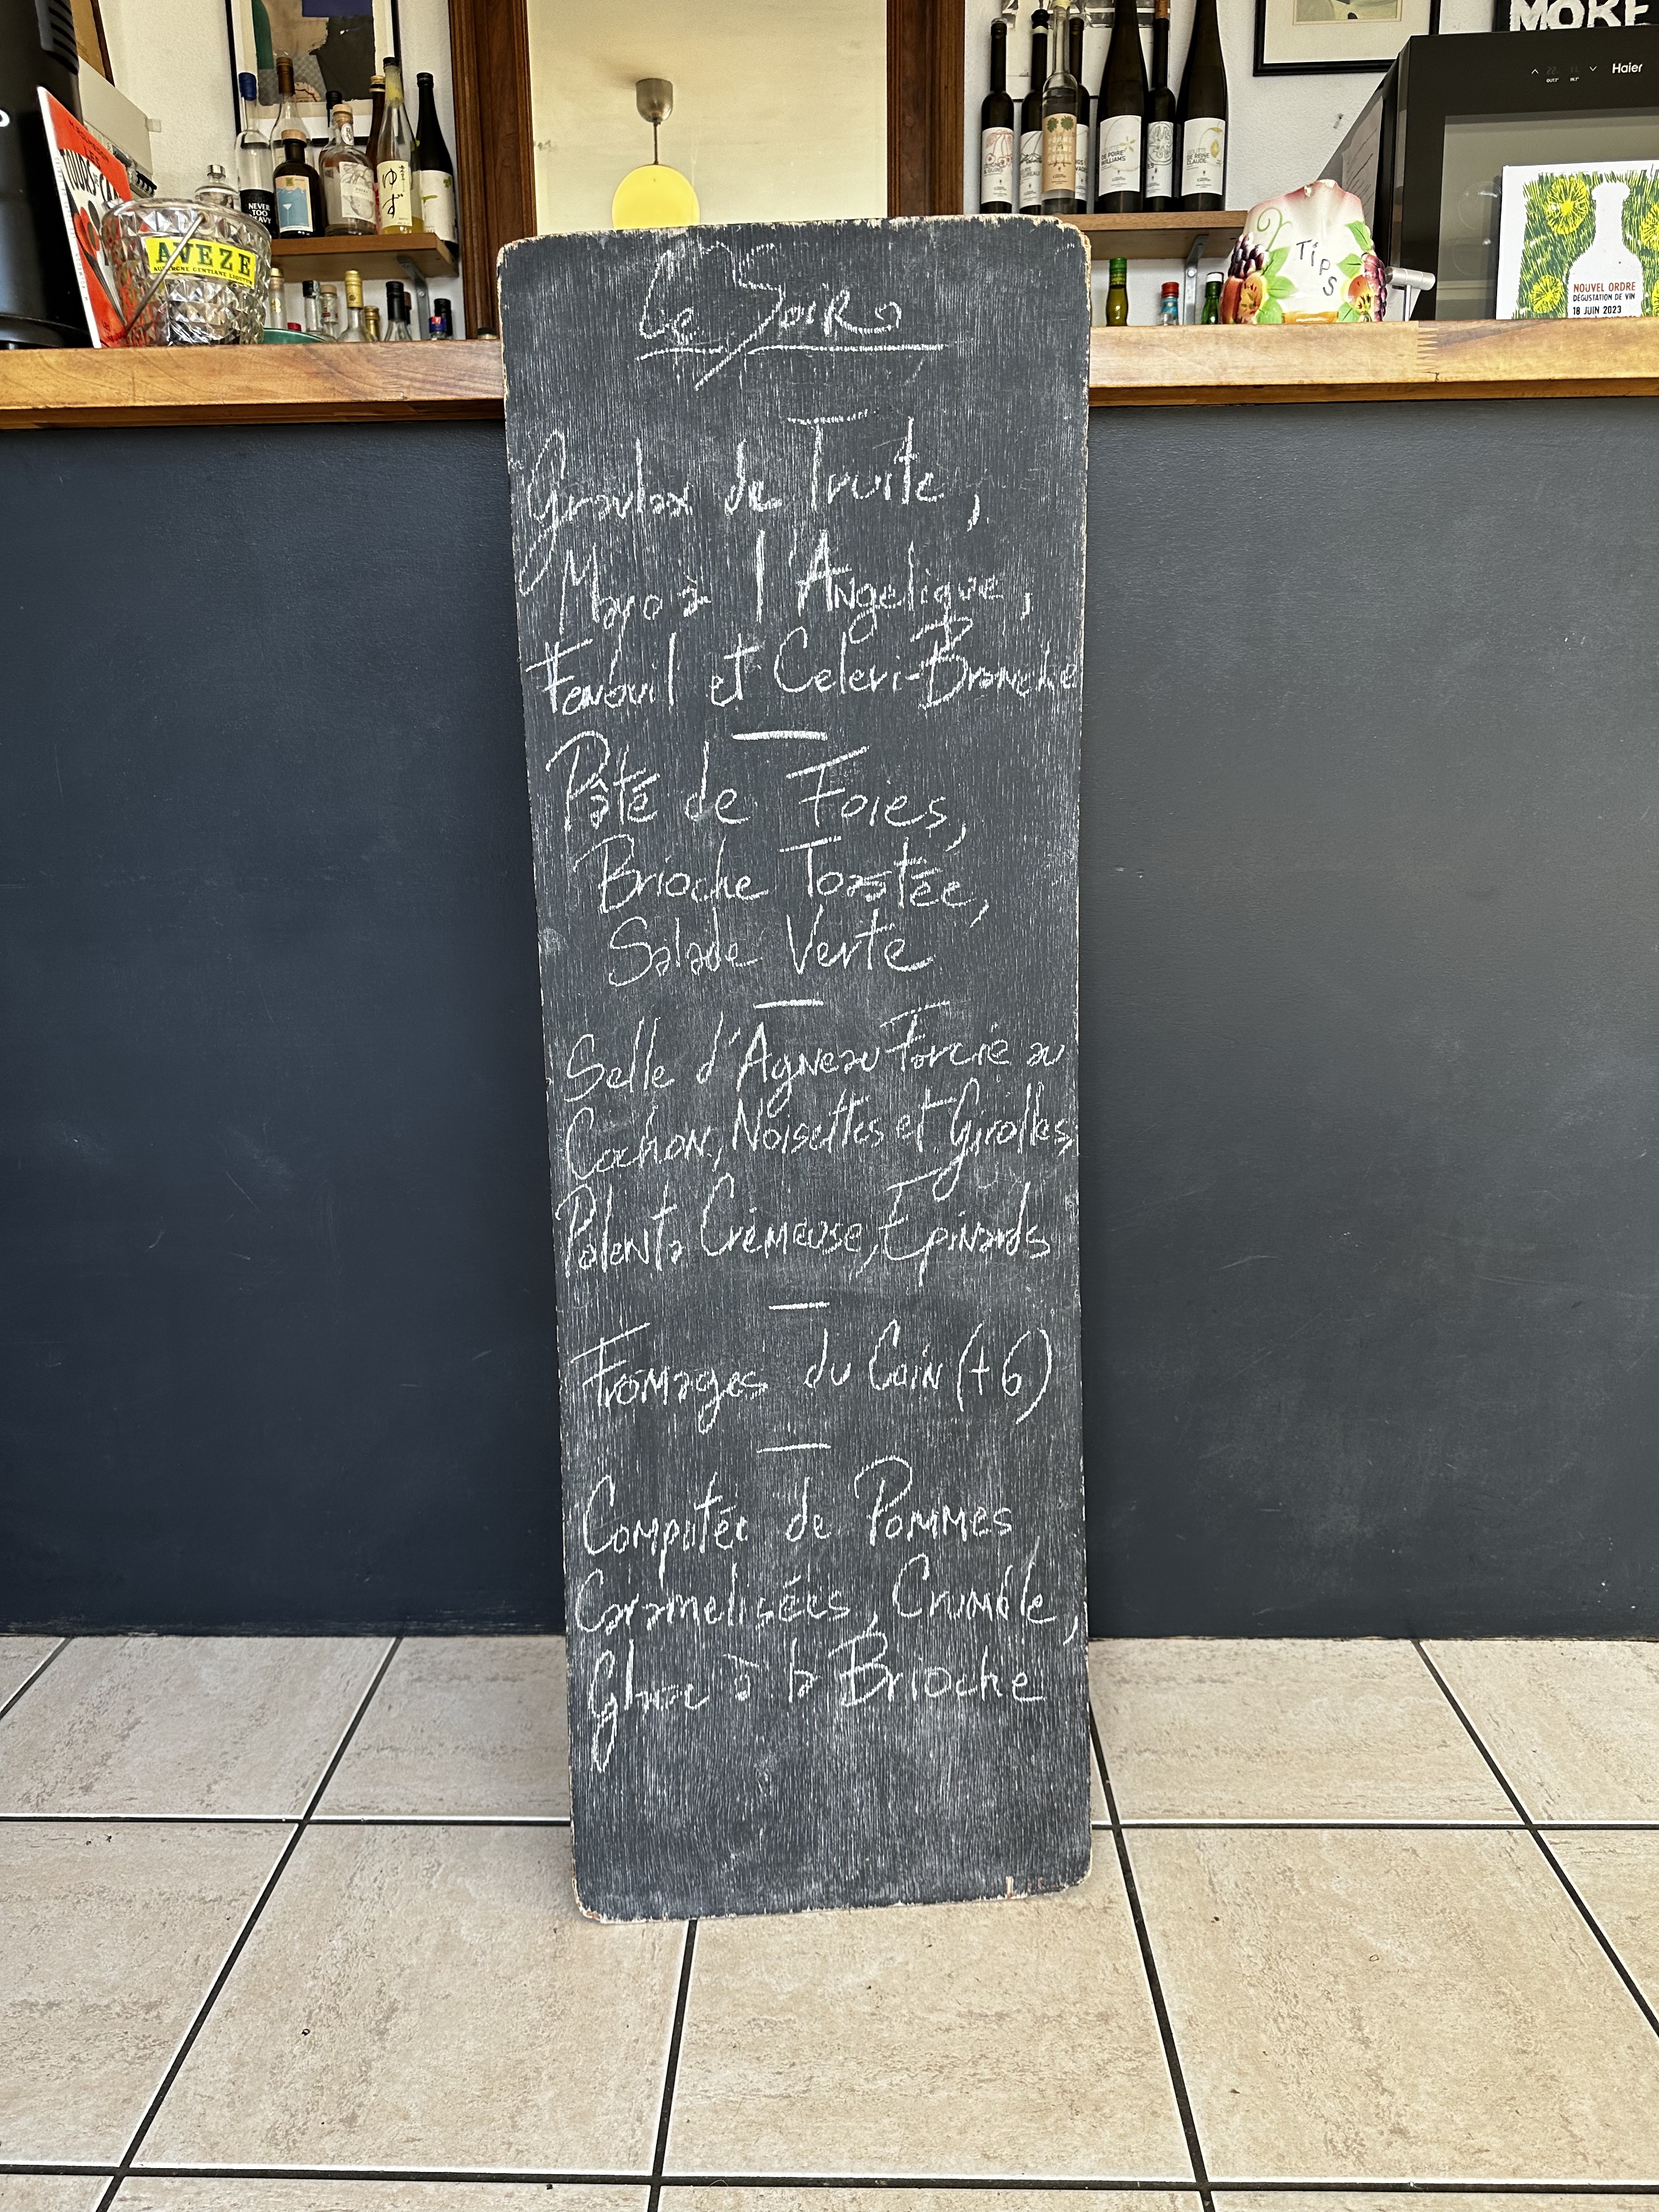 MORE
Haier
NEVER
TOO
ゆず
AVEZE
AUVERGNE GENTIANE LIQUEUR
DE POIRE
WILLIAMS
DE REINE
CLAUDE
TiPS
NOUVEL ORDRE
DÉGUSTATION DE VIN
18 JUIN 2023
Ce Soir
Gravlax de Truite,
Mayo à l'Angelique,
Fenouil et Celeri-Branche
Pâté de Foies,
Brioche Toastée,
Salade Verte
Selle d'Agneau Farcie au
Cochon, Noisettes et Girolles,
Polenta Crémeuse, Epinards
Fromages du Coin (+6)
Compotée de Pommes
Caramelisées, Crumble,
Glace à la Brioche